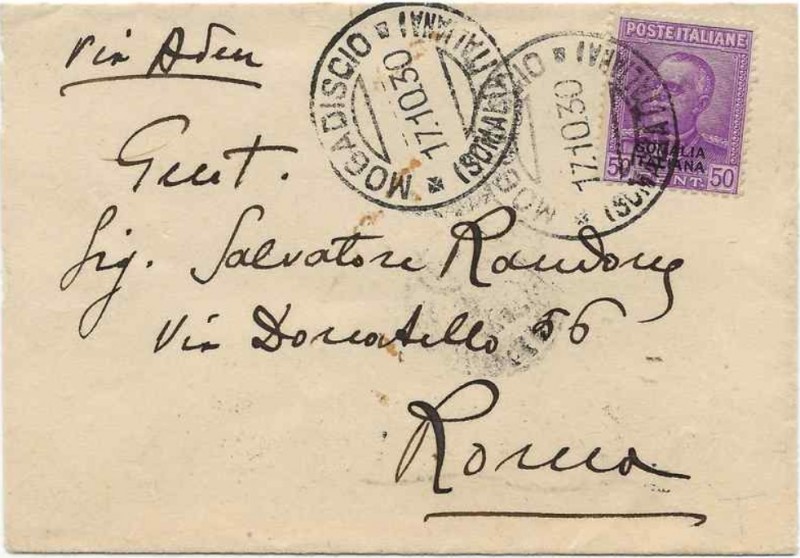 Via Aden
MOGADISCIO
(SOMALIA ITALIANA)
17.10.30
MOGADISCIO
(SOMALIA ITALIANA)
17.10.30
POSTE ITALIANE
SOMALIA
ITALIANA
50 CENT. 50
Gent.
Sig. Salvatore
Via Donatello 56
Roma